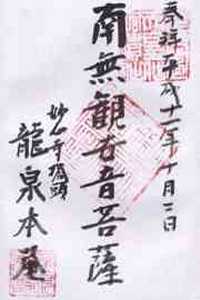 奉拝 平成十二年十月二日
南無観世音菩薩
妙心寺塔頭
龍泉本庵